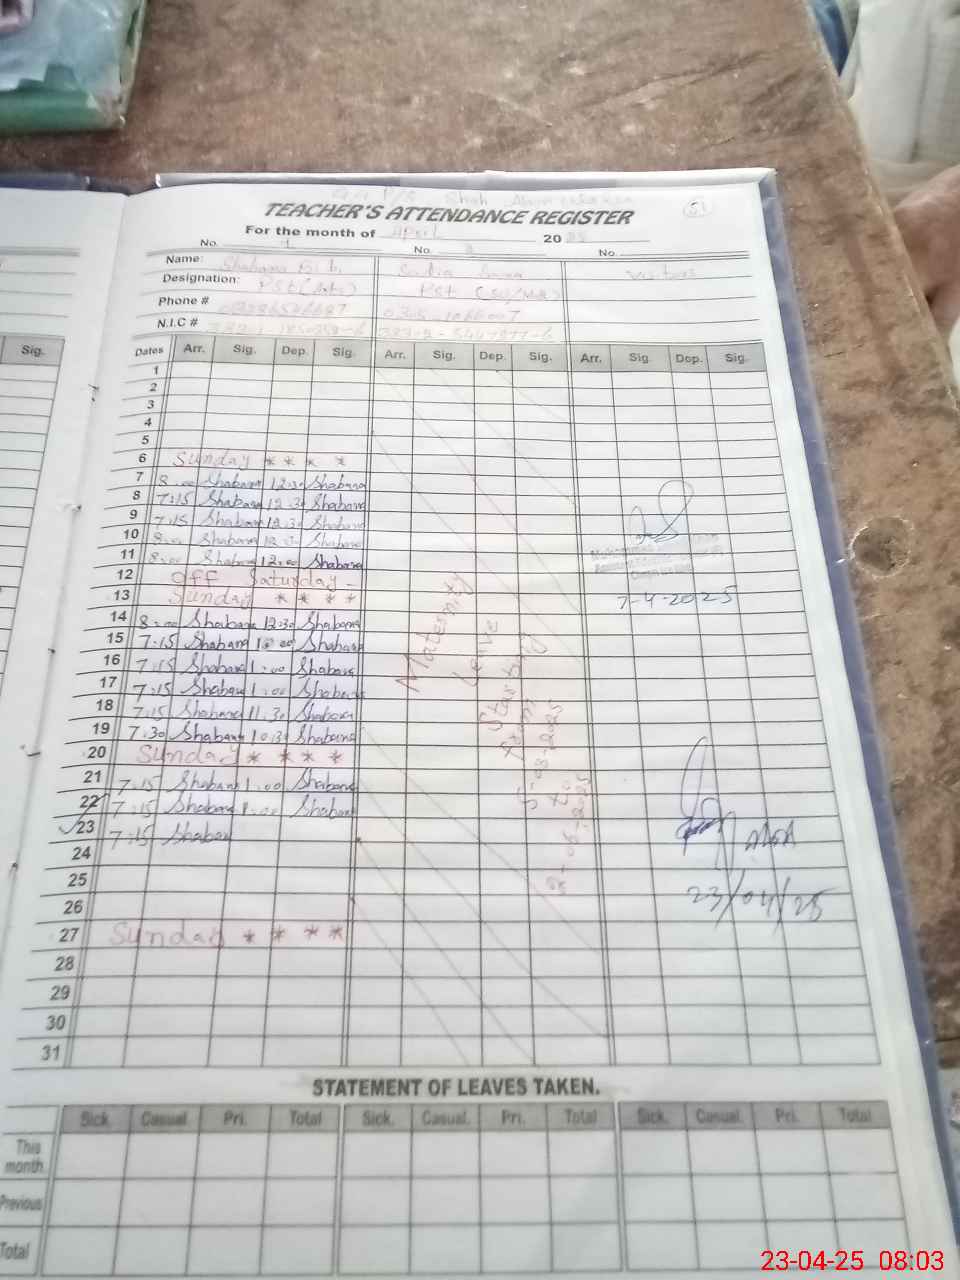 TEACHER'S ATTENDANCE REGISTER 51
For the month of April 20
No. 1 No. 2 No.
Name: Shabana Bibi Sadia Visitors
Designation: PST (Arts) PST
Phone #
N.I.C #
Sig. Dates Arr. Sig. Dep. Sig. Arr. Sig. Dep. Sig. Arr. Sig. Dop. Sig.
1
2
3
4
5
6 Sunday * * * *
7 8:00 Shabana 12:30 Shabana
8 7:15 Shabana 12:30 Shabana
9 7:15 Shabana 12:30 Shabana
10 8:00 Shabana 12:30 Shabana
11 8:00 Shabana 12:00 Shabana
12 Off Saturday
13 Sunday * * * * 7-4-2025
14 8:00 Shabana 12:30 Shabana
15 7:15 Shabana 1:00 Shabana
16 7:15 Shabana 1:00 Shabana
17 7:15 Shabana 1:00 Shabana
18 7:15 Shabana 11:30 Shabana
19 7:30 Shabana 10:30 Shabana
20 Sunday * * * *
21 7:15 Shabana 1:00 Shabana
22 7:15 Shabana 1:00 Shabana
23 7:15 Shabana
24
25
26 23/04/25
27 Sunday * * * *
28
29
30
31
Maternity
Leave
Starting
From
5-03-2025
to
STATEMENT OF LEAVES TAKEN.
Sick. Casual. Pri. Total Sick. Casual. Pri. Total Sick. Casual. Pri. Total
This month.
Previous
Total
23-04-25 08:03